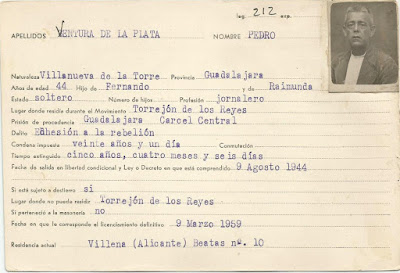 leg. 212 exp.
APELLIDOS VENTURA DE LA PLATA NOMBRE PEDRO
Naturaleza Villanueva de la Torre Provincia Guadalajara
Años de edad 44 Hijo de Fernando y de Raimunda
Estado soltero Número de hijos Profesión jornalero
Lugar donde residía durante el Movimiento Torrejón de los Reyes
Prisión de procedencia Guadalajara Carcel Central
Delito Edhesión a la rebelión
Condena impuesta veinte años y un día Conmutación
Tiempo extinguido cinco años, cuatro meses y seis días
Fecha de salida en libertad condicional y Ley o Decreto en que está comprendido 9 Agosto 1944
Si está sujeto a destierro si
Lugar donde no puede residir Torrejón de los Reyes
Si perteneció a la masonería no
Fecha en que le corresponde el licenciamiento definitivo 9 Marzo 1959
Residencia actual Villena (Alicante) Beatas nº. 10